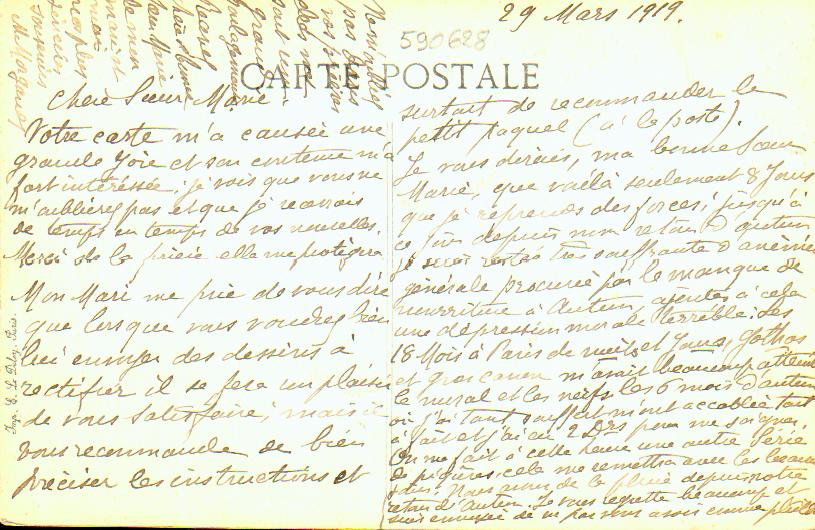 29 Mars 1919.
590628
CARTE POSTALE
Chère Sœur Marie.
Votre carte m'a causée une
grande joie et son contenu m'a
fort intéressée, je vois que vous ne
m'oublierez pas et que je recevrais
de temps en temps de vos nouvelles.
Merci de la prière elle me protègera
Mon Mari me prie de vous dire
que lorsque vous voudrez bien
lui envoyer des dessins à
rectifier il se fera un plaisir
de vous satisfaire, mais il
vous recommande de bien
préciser les instructions et
surtout de recommander le
petit paquet (à la poste).
Je vous dirais, ma bonne Sœur
Marie, que voilà seulement 8 Jours
que je reprends des forces, jusqu'à
ce jour depuis mon retour d'Autun
je serai restée très souffrante d'anémie
générale procurée par le manque de
nourriture à Autun, ajoutés à cela
une dépression morale terrible. Les
18 Mois à Paris de nuits et Jours, Gothas
et gros canon m'avait beaucoup atteint
le moral et les nerfs, les 6 mois d'Autun
où j'ai tant souffert m'ont accablée tout
à fait et j'ai eu 2 Drs pour me soigner.
On me fait à cette heure une autre série
de piqûres, cela me remettra avec les beaux
jours. Nous avons de la pluie depuis notre
retour d'Autun. Je vous regrette beaucoup et
suis ennuyée de ne pas vous avoir comme
N'oubliez
pas
vos prières
grand
Recevez
chère bonne
Sœur Marie
de mon
mari et
moi
nos plus
sincères
Imp. E. Le Deley, Paris.